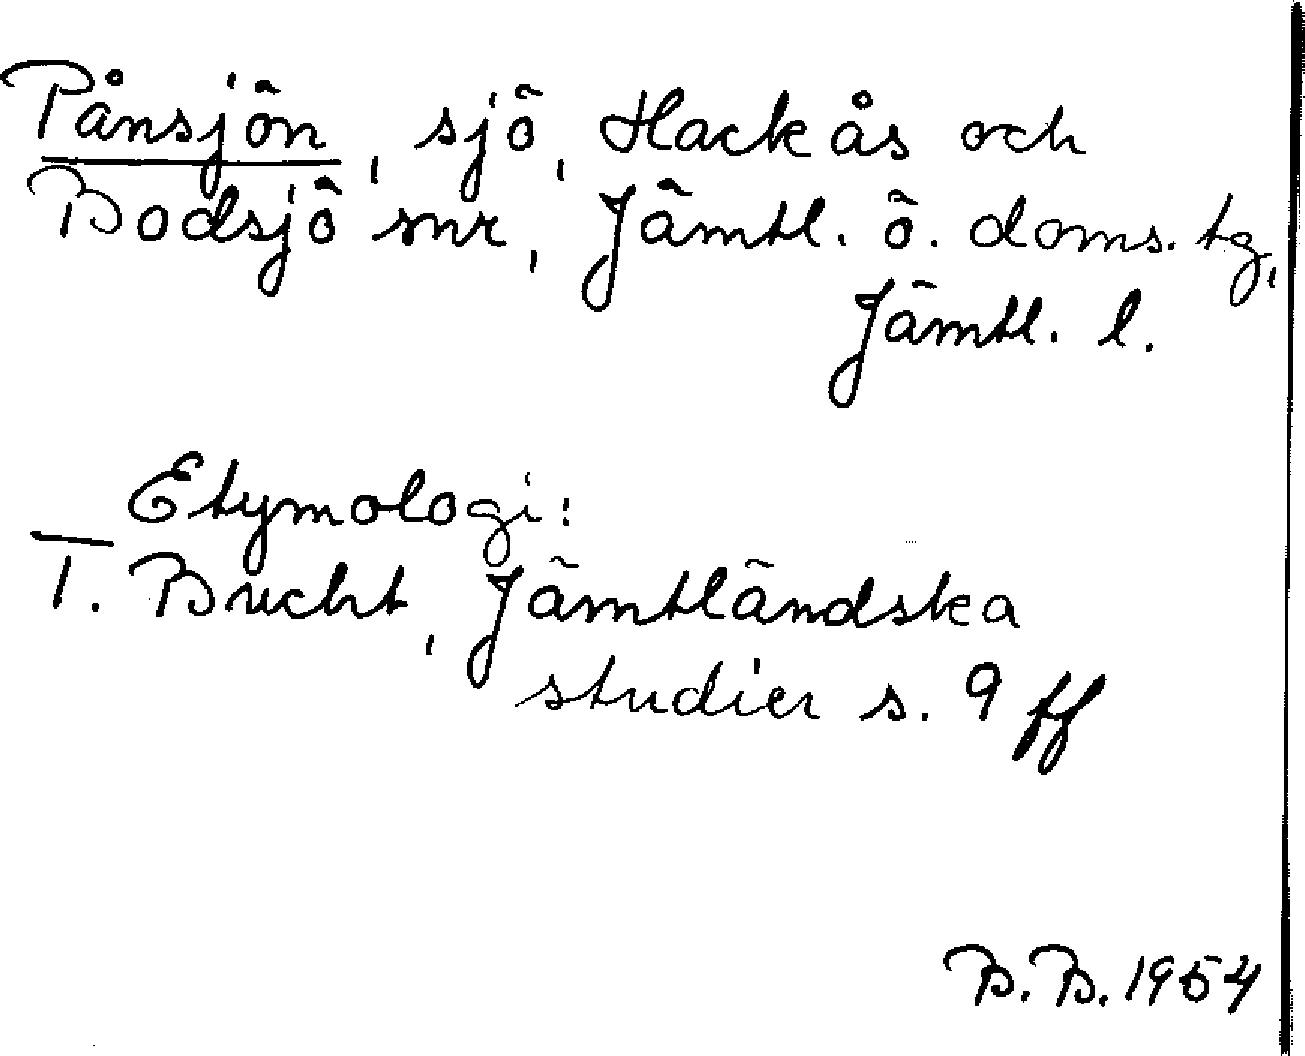 Pånsjön, sjö, Hackås och
Bodsjö snr, Jämtl. ö. doms. tg,
Jämtl. l.
Etymologi:
T. Bucht, Jämtländska
studier s. 9 ff
B.B. 1954